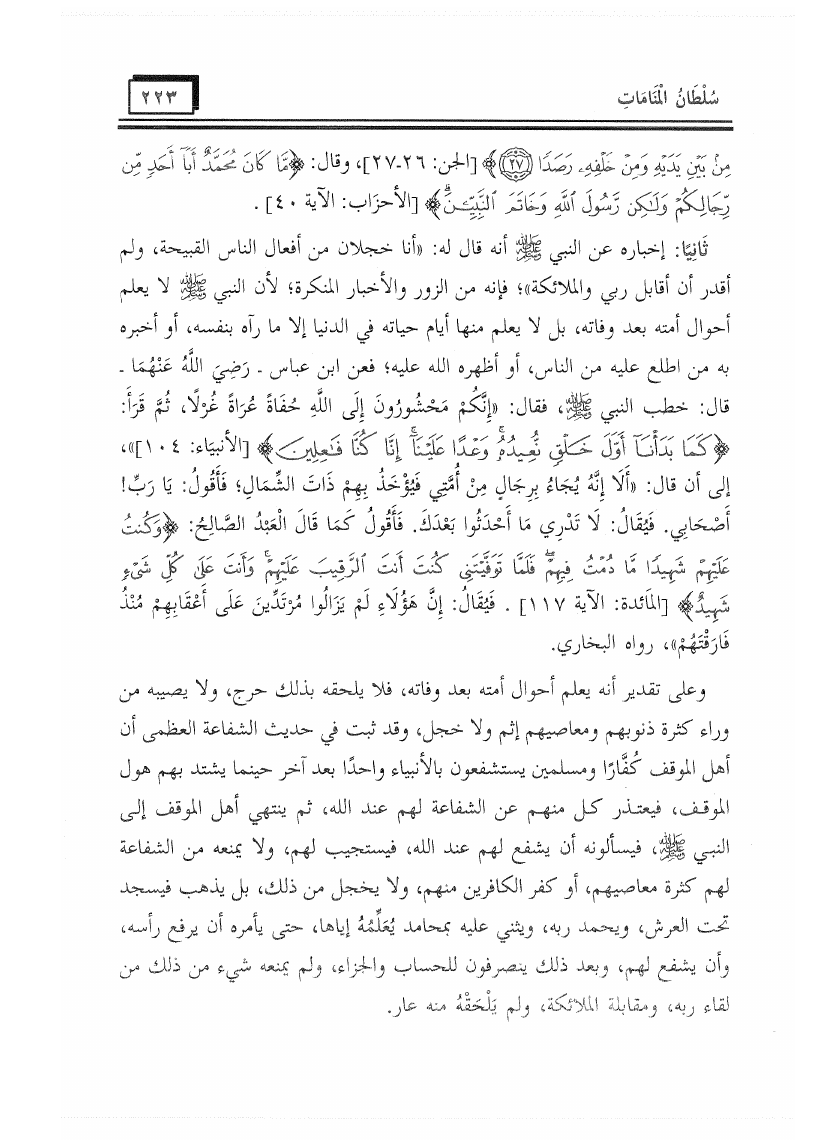 سُلْطَانُ الْمَنَامَاتِ
٢٢٣
مِنْ بَيْنِ يَدَيْهِ وَمِنْ خَلْفِهِۦ رَصَدًا ﴿٢٧﴾﴾ [الجن: ٢٦-٢٧]، وقال: ﴿مَّا كَانَ مُحَمَّدٌ أَبَآ أَحَدٍ مِّن
رِّجَالِكُمْ وَلَٰكِن رَّسُولَ ٱللَّهِ وَخَاتَمَ ٱلنَّبِيِّـۧنَۗ﴾ [الأحزَاب: الآية ٤٠] .
ثَانِيًا: إخباره عن النبي ﷺ أنه قال له: «أنا خجلان من أفعال الناس القبيحة، ولم
أقدر أن أقابل ربي والملائكة»؛ فإنه من الزور والأخبار المنكرة؛ لأن النبي ﷺ لا يعلم
أحوال أمته بعد وفاته، بل لا يعلم منها أيام حياته في الدنيا إلا ما رآه بنفسه، أو أخبره
به من اطلع عليه من الناس، أو أظهره الله عليه؛ فعن ابن عباس ـ رَضِيَ اللَّهُ عَنْهُمَا ـ
قال: خطب النبي ﷺ، فقال: «إِنَّكُمْ مَحْشُورُونَ إِلَى اللَّهِ حُفَاةً عُرَاةً غُرْلًا، ثُمَّ قَرَأَ:
﴿كَمَا بَدَأْنَآ أَوَّلَ خَلْقٍ نُّعِيدُهُۥۚ وَعْدًا عَلَيْنَآۚ إِنَّا كُنَّا فَٰعِلِينَ﴾ [الأنبيَاء: ١٠٤]»،
إلى أن قال: «أَلَا إِنَّهُ يُجَاءُ بِرِجَالٍ مِنْ أُمَّتِي فَيُؤْخَذُ بِهِمْ ذَاتَ الشِّمَالِ؛ فَأَقُولُ: يَا رَبِّ!
أَصْحَابِي. فَيُقَالُ: لَا تَدْرِي مَا أَحْدَثُوا بَعْدَكَ. فَأَقُولُ كَمَا قَالَ الْعَبْدُ الصَّالِحُ: ﴿وَكُنتُ
عَلَيْهِمْ شَهِيدًا مَّا دُمْتُ فِيهِمْۖ فَلَمَّا تَوَفَّيْتَنِى كُنتَ أَنتَ ٱلرَّقِيبَ عَلَيْهِمْۚ وَأَنتَ عَلَىٰ كُلِّ شَىْءٍ
شَهِيدٌ﴾ [المَائدة: الآية ١١٧] . فَيُقَالُ: إِنَّ هَؤُلَاءِ لَمْ يَزَالُوا مُرْتَدِّينَ عَلَى أَعْقَابِهِمْ مُنْذُ
فَارَقْتَهُمْ»، رواه البخاري.
وعلى تقدير أنه يعلم أحوال أمته بعد وفاته، فلا يلحقه بذلك حرج، ولا يصيبه من
وراء كثرة ذنوبهم ومعاصيهم إثم ولا خجل، وقد ثبت في حديث الشفاعة العظمى أن
أهل الموقف كُفَّارًا ومسلمين يستشفعون بالأنبياء واحدًا بعد آخر حينما يشتد بهم هول
الموقف، فيعتذر كل منهم عن الشفاعة لهم عند الله، ثم ينتهي أهل الموقف إلى
النبي ﷺ، فيسألونه أن يشفع لهم عند الله، فيستجيب لهم، ولا يمنعه من الشفاعة
لهم كثرة معاصيهم، أو كفر الكافرين منهم، ولا يخجل من ذلك، بل يذهب فيسجد
تحت العرش، ويحمد ربه، ويثني عليه بمحامد يُعَلِّمُهُ إياها، حتى يأمره أن يرفع رأسه،
وأن يشفع لهم، وبعد ذلك ينصرفون للحساب والجزاء، ولم يمنعه شيء من ذلك من
لقاء ربه، ومقابلة الملائكة، ولم يَلْحَقْهُ منه عار.